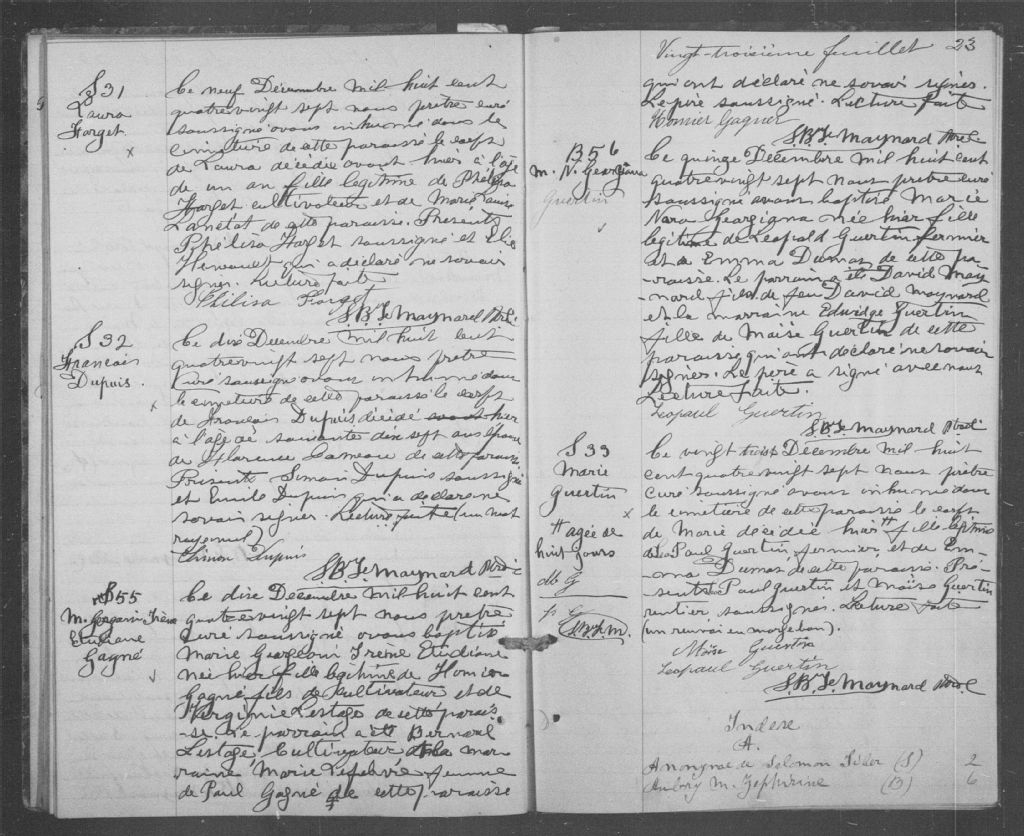 S 31
Laura
Forget
x
Ce neuf Décembre mil huit cent
quatre vingt sept nous prêtre curé
soussigné avons inhumé dans le
cimetière de cette paroisse le corps
de Laura décédée avant hier à l'age
de un an fille légitime de
Forget cultivateur et de Marie Louise
de cette paroisse. Présents
Forget soussigné et
qui a déclaré ne savoir
signer. Lecture faite
Philisa Forget
Maynard Ptre C
S 32
Francois
Dupuis.
x
Ce dix Decembre mil huit cent
quatre vingt sept nous prêtre
curé soussigné avons inhumé dans
le cimetière de cette paroisse le corps
de François Dupuis décédé avant hier
à l'age de soixante dix sept ans époux
de Florence de cette paroisse
Présents Simon Dupuis soussigné
et Dupuis qui a déclaré ne
savoir signer. Lecture faite (un mot
rayé nul)
Simon Dupuis
Maynard Ptre C
B 55
M. Irène
Gagné
Ce dix Décembre mil huit cent
quatre vingt sept nous prêtre
curé soussigné avons baptisé
Marie Irène
née hier fille légitime de
Gagné fils de cultivateur et de
Virginie Lestage de cette parois-
se. Le parrain a été Bernard
Lestage Cultivateur et la mar-
raine Marie Lefebvre femme
de Paul Gagné de cette paroisse
Vingt-troisième feuillet 23
qui ont déclaré ne savoir signer.
Le père soussigné. Lecture faite
Gagner
Maynard Ptre C
B 56
m. N. Georgiana
Guertin
Ce quinze Décembre mil huit cent
quatre vingt sept nous prêtre curé
soussigné avons baptisé Marie
Nora Georgigna née hier fille
légitime de Léopold Guertin fermier
et de Emma Dumas de cette pa-
roisse. Le parrain a été David May
nard fils de feu David Maynard
et la marraine Edwidge Guertin
fille de Moïse Guertin de cette
paroisse qui ont déclaré ne savoir
signer. Le père a signé avec nous
Lecture faite.
Leopaul Guertin
Maynard Ptre C
S 33
Marie
Guertin
x
# agée de
huit jours
M G
Ce vingt trois Décembre mil huit
cent quatre vingt sept nous prêtre
curé soussigné avons inhumé dans
le cimetière de cette paroisse le corps
de Marie décédée hier # fille légitime
de Léo Paul Guertin fermier, et de Em-
ma Dumas de cette paroisse. Pré-
sents Paul Guertin et Moïse Guertin
rentier, soussignés. Lecture faite
(un renvoi en marge bon).
Moise Guertin
Leopaul Guertin
Maynard Ptre C
Indexe
A.
Anonyme de Solomon (S) 2
M. Zephirine (B) 6